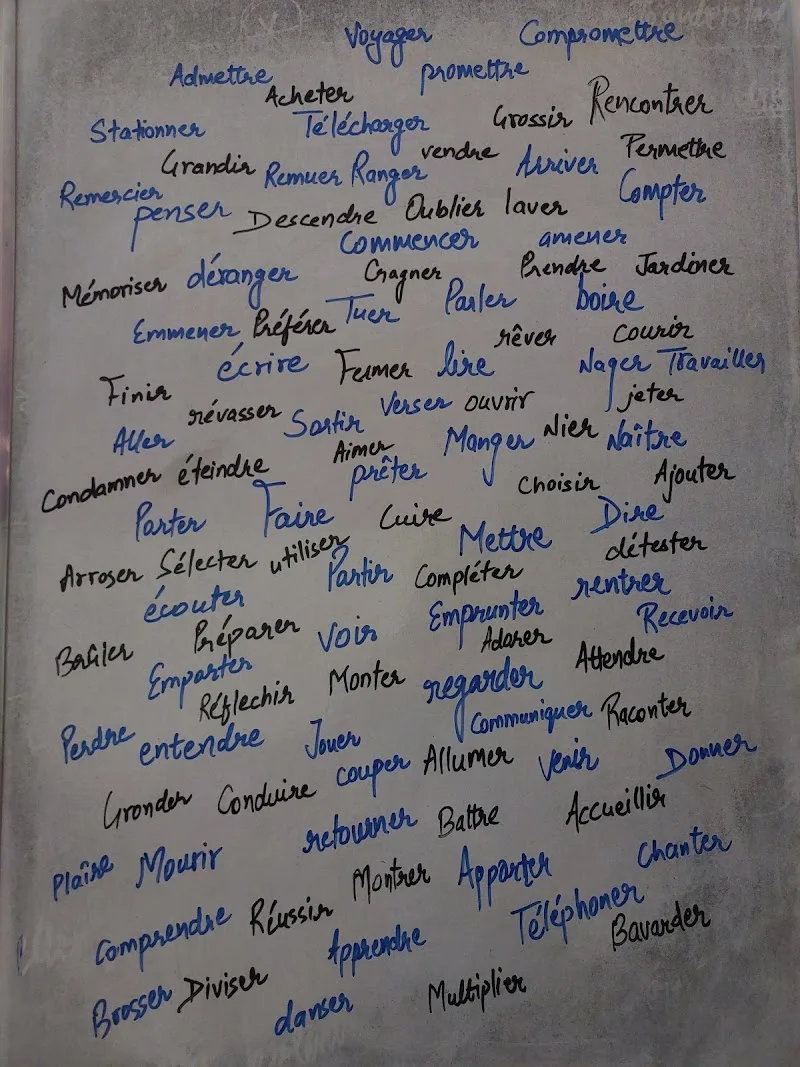 Voyager Compromettre
Admettre promettre
Acheter Rencontrer
Stationner Télécharger Grossir
Grandir vendre Arriver Permettre
Remercier Remuer Ranger Compter
penser Descendre Oublier laver
Commencer amener
Mémoriser déranger Gagner Prendre Jardiner
Emmener Préférer Tuer Parler boire
rêver courir
Finir écrire Fumer lire Nager Travailler
révasser Verser ouvrir jeter
Aller Sortir Manger Nier Naître
Condamner éteindre Aimer
prêter Choisir Ajouter
Porter Faire Cuire Mettre Dire
Arroser Sélecter utiliser détester
écouter Partir Compléter rentrer
Brûler Préparer voir Emprunter Recevoir
Emporter Adorer
Réflechir Monter regarder Attendre
Perdre entendre Jouer Communiquer Raconter
Gronder Conduire couper Allumer venir Donner
Plaîre Mourir retourner Battre Accueillir
Montrer Apporter Chanter
Comprendre Réussir Téléphoner
Apprendre Bavarder
Brosser Diviser
danser Multiplier